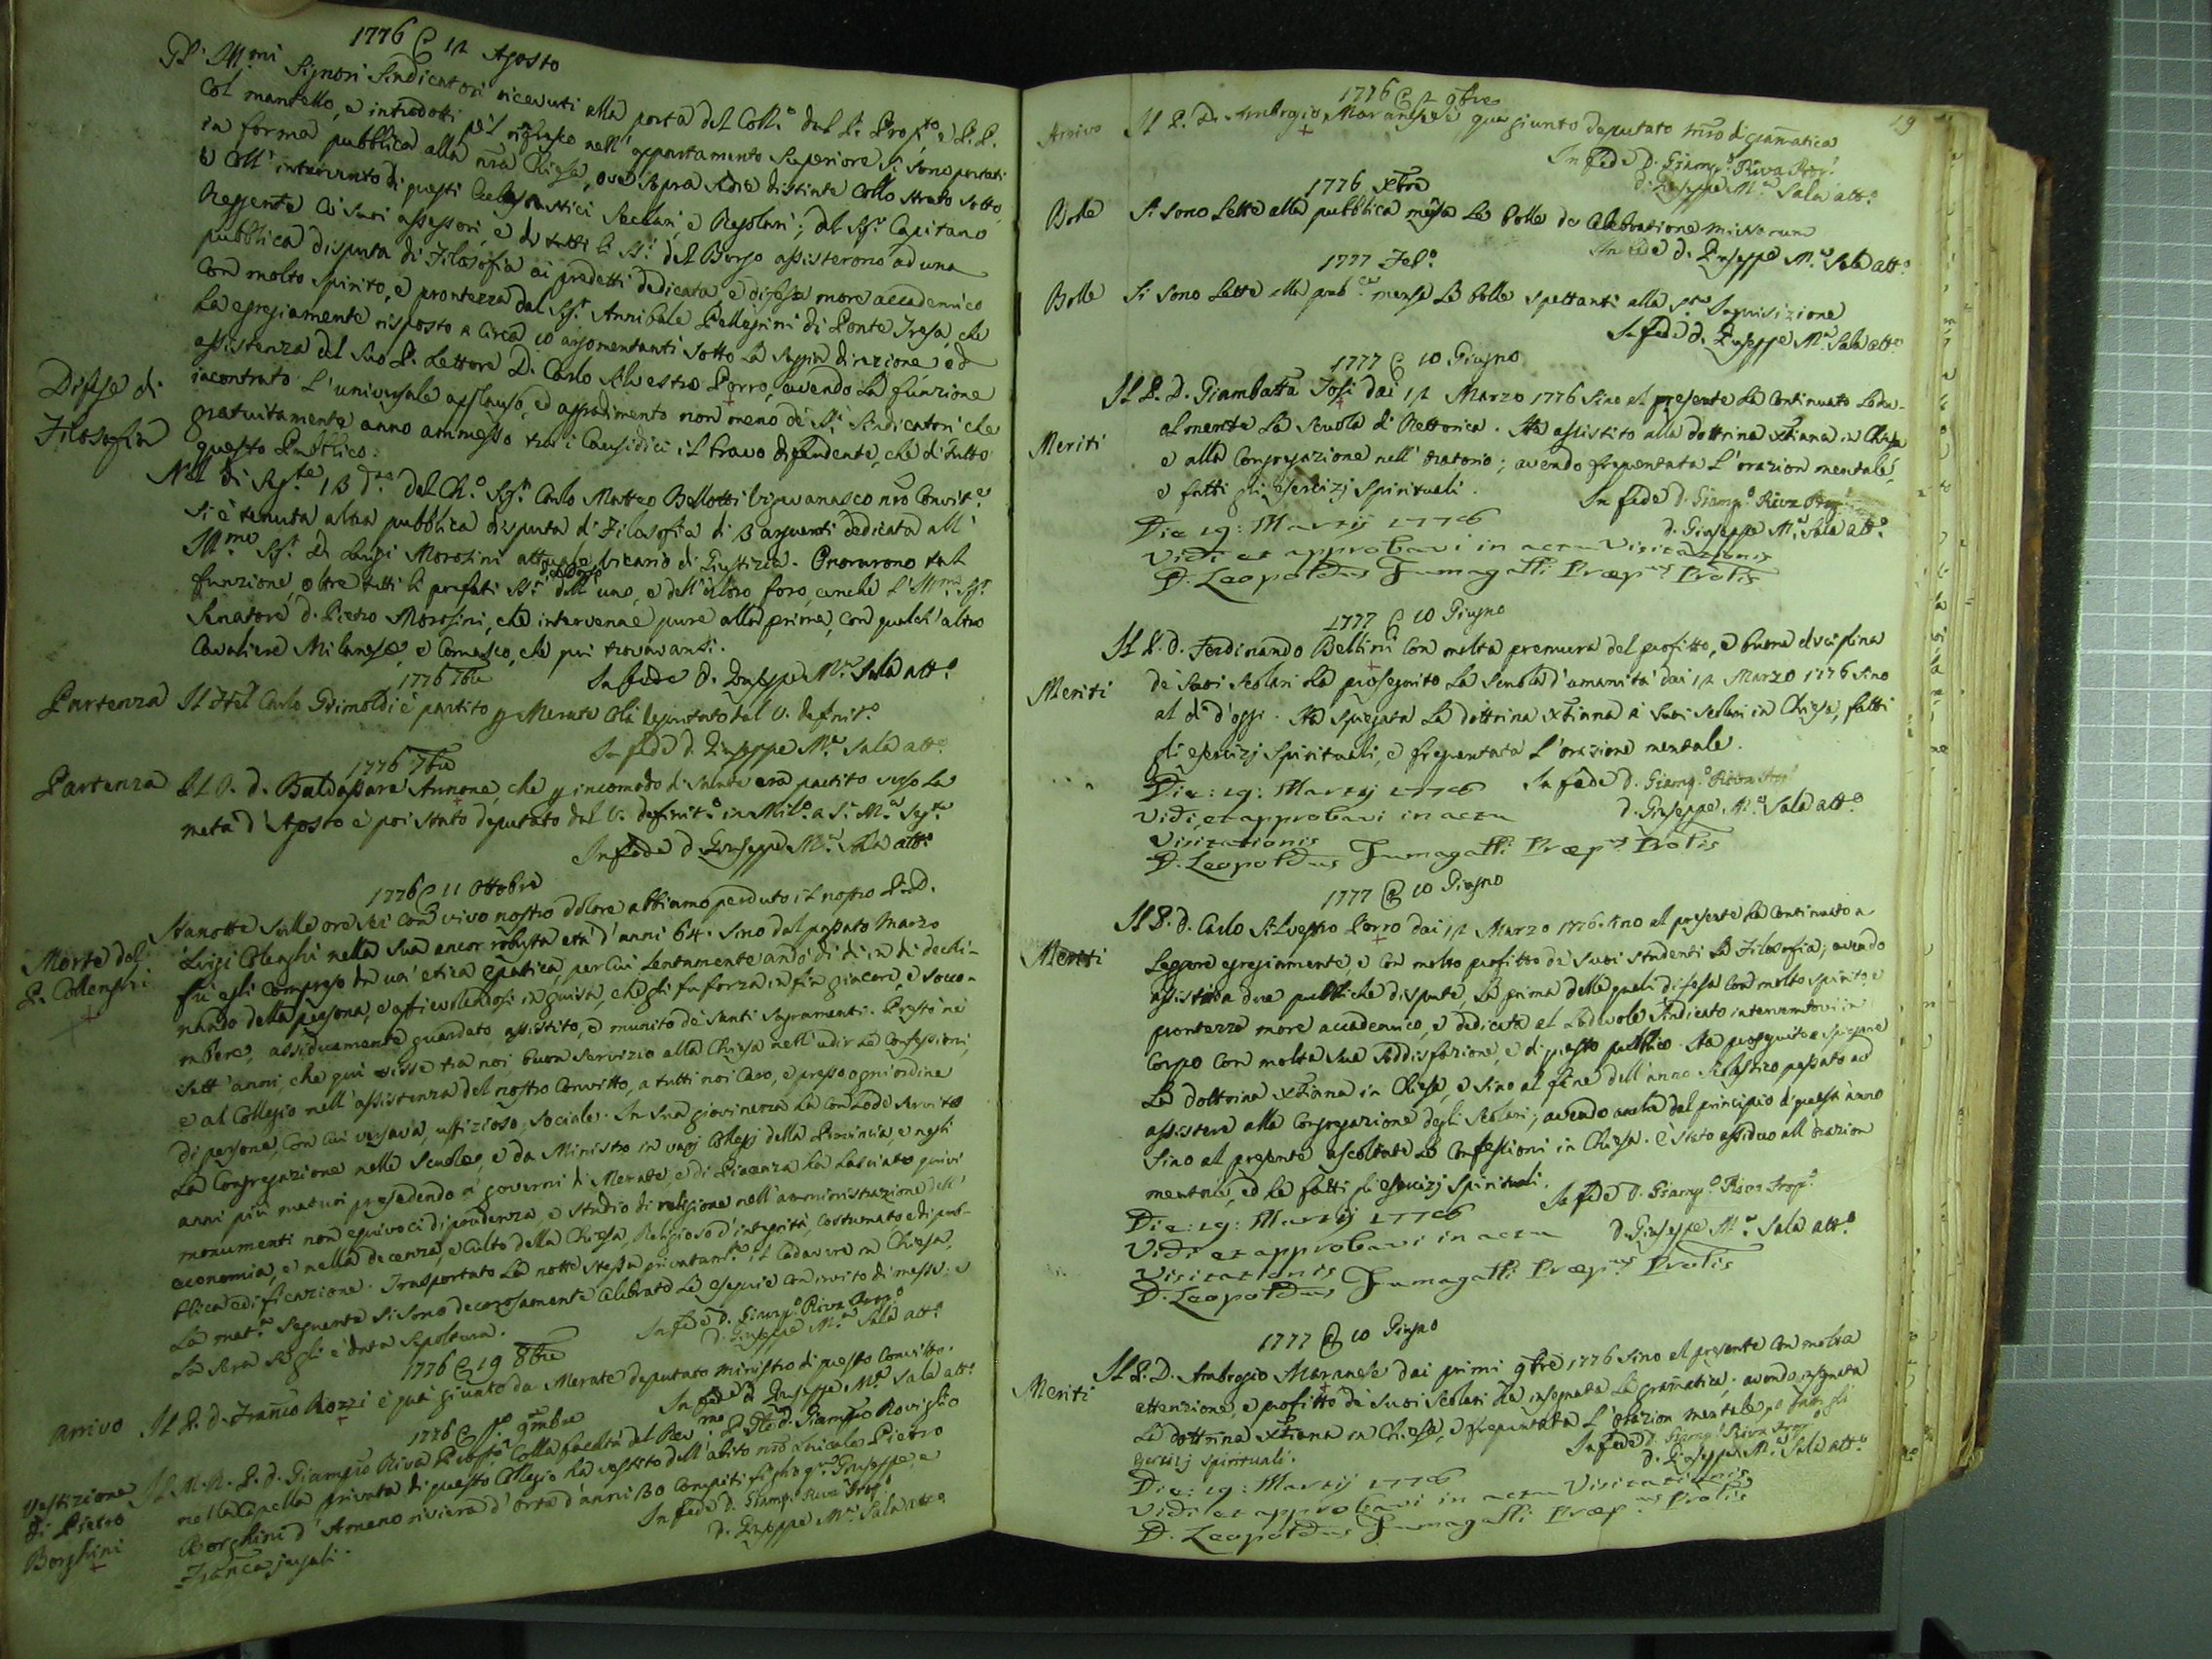 1776 @ 12 Agosto
Gl' Ill.mi Signori Sindicatori ricevuti alla porta del Coll.o dal P. Prop.to e P.P.
col mantello, e introdotti pel rinfresco nell' appartamento Superiore si sono portati
in forma pubblica alla nra Chiesa, ove sopra sedie distinte collo strato sotto,
e coll' intervento di questi Ecclesiastici Secolari, e Regolari; del Sig.r Capitano
Reggente co' suoi assessori, e di tutti li SS.ri del Borgo assisterono ad una
pubblica disputa di Filosofia ai predetti dedicata, e difesa more accademico
con molto spirito, e prontezza dal Sig.r Annibale Pellegrini di Ponte Tresa, che
ha egregiamente risposto a circa 10 argomentanti sotto la saggia direzione ed
assistenza del suo P. Lettore D. Carlo Silvestro Porro, avendo la funzione
incontrato l'universale applauso, ed aggradimento non meno de' SS.ri Sindicatori che
gratuitamente anno ammesso tra i Causidici il bravo difendente, che di tutto
questo Pubblico.
Difese di
Filosofia
Nel di seg.te 13 d.to dal Ch.o Sig.r Carlo Matteo Bellotti Vigevanasco nro Convit.e
si è tenuta altra pubblica disputa di Filosofia di 3 arguenti dedicata all'
Ill.mo Sig.r D. Luigi Morosini attuale Vicario di Giustizia. Onorarono tal
funzione, oltre tutti li prefati SS.ri dell' uno, e dell' altro foro, anche l'Ill.mo Sig.r
Senatore d. Pietro Morosini, che intervenne pure alla prima, con qualch' altro
Cavaliere Milanese, e Comasco, che qui trovavansi.
In fede D. Giuseppe M.a Sala att.o
1776 7bre
Partenza Il Fr̃el Carlo Grimoldi è partito p Merate colà deputato dal V. definit.o
In fede d. Giuseppe M.a Sala att.o
1776 7bre
Partenza Il P. d. Baldassare Annone, che p incomodo di salute era partito verso la
metà d' Agosto è poi stato deputato dal V. definit.o in Mil.o a S. M.a Seg.ta
In fede d. Giuseppe M.a Sala att.o
1776 @ 11 Ottobre
Morte del
P. Collenghi
Stanotte sulle ore sei con vivo nostro dolore abbiamo perduto il nostro P. D.
Luigi Colenghi nella sua ancor robusta età d'anni 64. Sino dal passato Marzo
fù egli compreso da un' etica epatica, per cui lentamente andò di dì in dì decli-
nando della persona, e affievolendosi in guisa, che gli fu forza in fin giacere, e soccom-
bere, assiduamente guardato, assistito, e munito de' Santi Sagramenti. Prestò ne'
sett' anni che qui visse tra noi buon servizio alla Chiesa nell' udir le Confessioni,
e al Collegio nell' assistenza del nostro Convitto, a tutti noi caro, e presso ogni ordine
di persone, con cui versava, uffizioso, sociale. In sua giovinezza ha con lode servito
la Congregazione nelle Scuole, e da Ministro in varj Collegj della Provincia, e negli
anni più maturi presedendo a' governi di Merate, e di Piacenza ha lasciato quivi
monumenti non equivoci di prudenza, e studio di religione nell' amministrazione dell'
economia, e nella decenza, e culto della Chiesa, Religioso d' integrità, costumato e di pub-
blica edificazione. Trasportato la notte stessa privatam.te il Cadavere in Chiesa,
la mat.a seguente si sono decorosamente celebrate le esequie con invito di messe; e
la sera se gli è data sepoltura.
In fede D. Giamp.o Riva Prop.o
D. Giuseppe M.a Sala att.o
1776 @ 19 8bre
Arrivo Il P. D. Franco Rozzi è quà giunto da Merate deputato ministro di questo Convitto.
In fede d. Giuseppe M.a Sala att.o
1776 @ p.o 9mbre
Vestizione
di Pietro
Borghini
Il M. R. P. d. Giampro Riva Prop.to colla facoltà del Rev.mo P. Gle D. Giampro Roviglio
nella Capella privata di questo Collegio ha vestito dell' abito nro Laicale Pietro
Borghini d' Ameno riviera d' Orta d' anni 30 compiti figlio q.m Giuseppe e
Franca jugali.
In fede D. Giamp.o Riva Prop.o
D. Giuseppe M.a Sala att.o
19
1776 @ 2 9bre
Arrivo Il P. D. Ambrogio Maranese è qua giunto deputato mro di gramatica
In fede D. Giamp.o Riva Prop.o
D. Giuseppe M.a Sala att.o
1776 Xbre
Bolle Si sono lette alla pubblica mensa le bolle de celebratione missarum
In fede d. Giuseppe M.a Sala att.o
1777 Feb.o
Bolle Si sono lette alla pub.ca mensa le bolle spettanti alla S.ta Inquisizione
In fede d. Giuseppe M.a Sala att.o
1777 @ 10 Giugno
Meriti
Il P. D. Giambatta Tosi dai 12 Marzo 1776 sino al presente ha continuato lode-
olmente la Scuola di Rettorica. Ha assistito alla dottrina xtiana in Chiesa
e alla Congregazione nell' oratorio; avendo frequentata l' orazion mentale,
e fatti gli esercizj Spirituali.
In fede d. Giamp.o Riva Prop.o
d. Giuseppe M.a Sala att.o
Die 19: Martij 1778
Vidi et approbavi in actu Visitationis
D. Leopoldus Fumagalli Præp.us Prolis
1777 @ 10 Giugno
Meriti
Il P. d. Ferdinando Bellini con molta premura del profitto, e buona disciplina
de' suoi Scolari ha proseguito la Scuola d'umanità dai 12 Marzo 1776 sino
al di d'oggi. Ha spiegata la dottrina xtiana a' suoi scolari in Chiesa, fatti
gli esercizj Spirituali, e frequentata l' orazione mentale.
In fede D. Giamp.o Riva Prop.o
D. Giuseppe M.a Sala att.o
Die: 19: Martij 1778
Vidi, et approbavi in actu
Visitationis
D. Leopoldus Fumagalli Præp.us Prolis
1777 @ 10 Giugno
Meriti
Il P. d. Carlo Silvestro Porro dai 12 Marzo 1776 sino al presente ha continuato a
leggere egregiamente, e con molto profitto de' suoi studenti la Filosofia; avendo
assistito a due pubbliche dispute, la prima delle quali difesa con molto spirito, e
prontezza more accademico, e dedicata al Lodevole Sindicato intervenutovi in
corpo con molta sua soddisfazione, e di questo pubblico. Ha proseguito a spiegare
la dottrina xtiana in Chiesa, e sino al fine dell' anno scolastico passato ad
assistere alla Congregazione degli Scolari; avendo anche dal principio di quest' anno
sino al presente ascoltate le Confessioni in Chiesa. È stato assiduo all' orazion
mentale, ed ha fatti gli esercizj spirituali.
In fede D. Giamp.o Riva Prop.o
D. Giuseppe M.a Sala att.o
Die: 19: Martij 1778
Vidi et approbavi in actu
Visitationis
D. Leopoldus Fumagalli Præp.us Prolis
1777 @ 10 Giugno
Meriti
Il P. D. Ambrogio Maranese dai primi 9bre 1776 sino al presente con molta
attenzione, e profitto de' suoi Scolari ha insegnata la gramatica; avendo insegnata
la dottrina xtiana in Chiesa, e frequentata l' orazion mentale, e fatti gli
esercizj spirituali.
In fede D. Giamp.o Riva Prop.o
D. Giuseppe M.a Sala att.o
Die: 19: Martij 1778
Vidi et approbavi in actu Visitationis
D. Leopoldus Fumagalli Præp.us Prolis